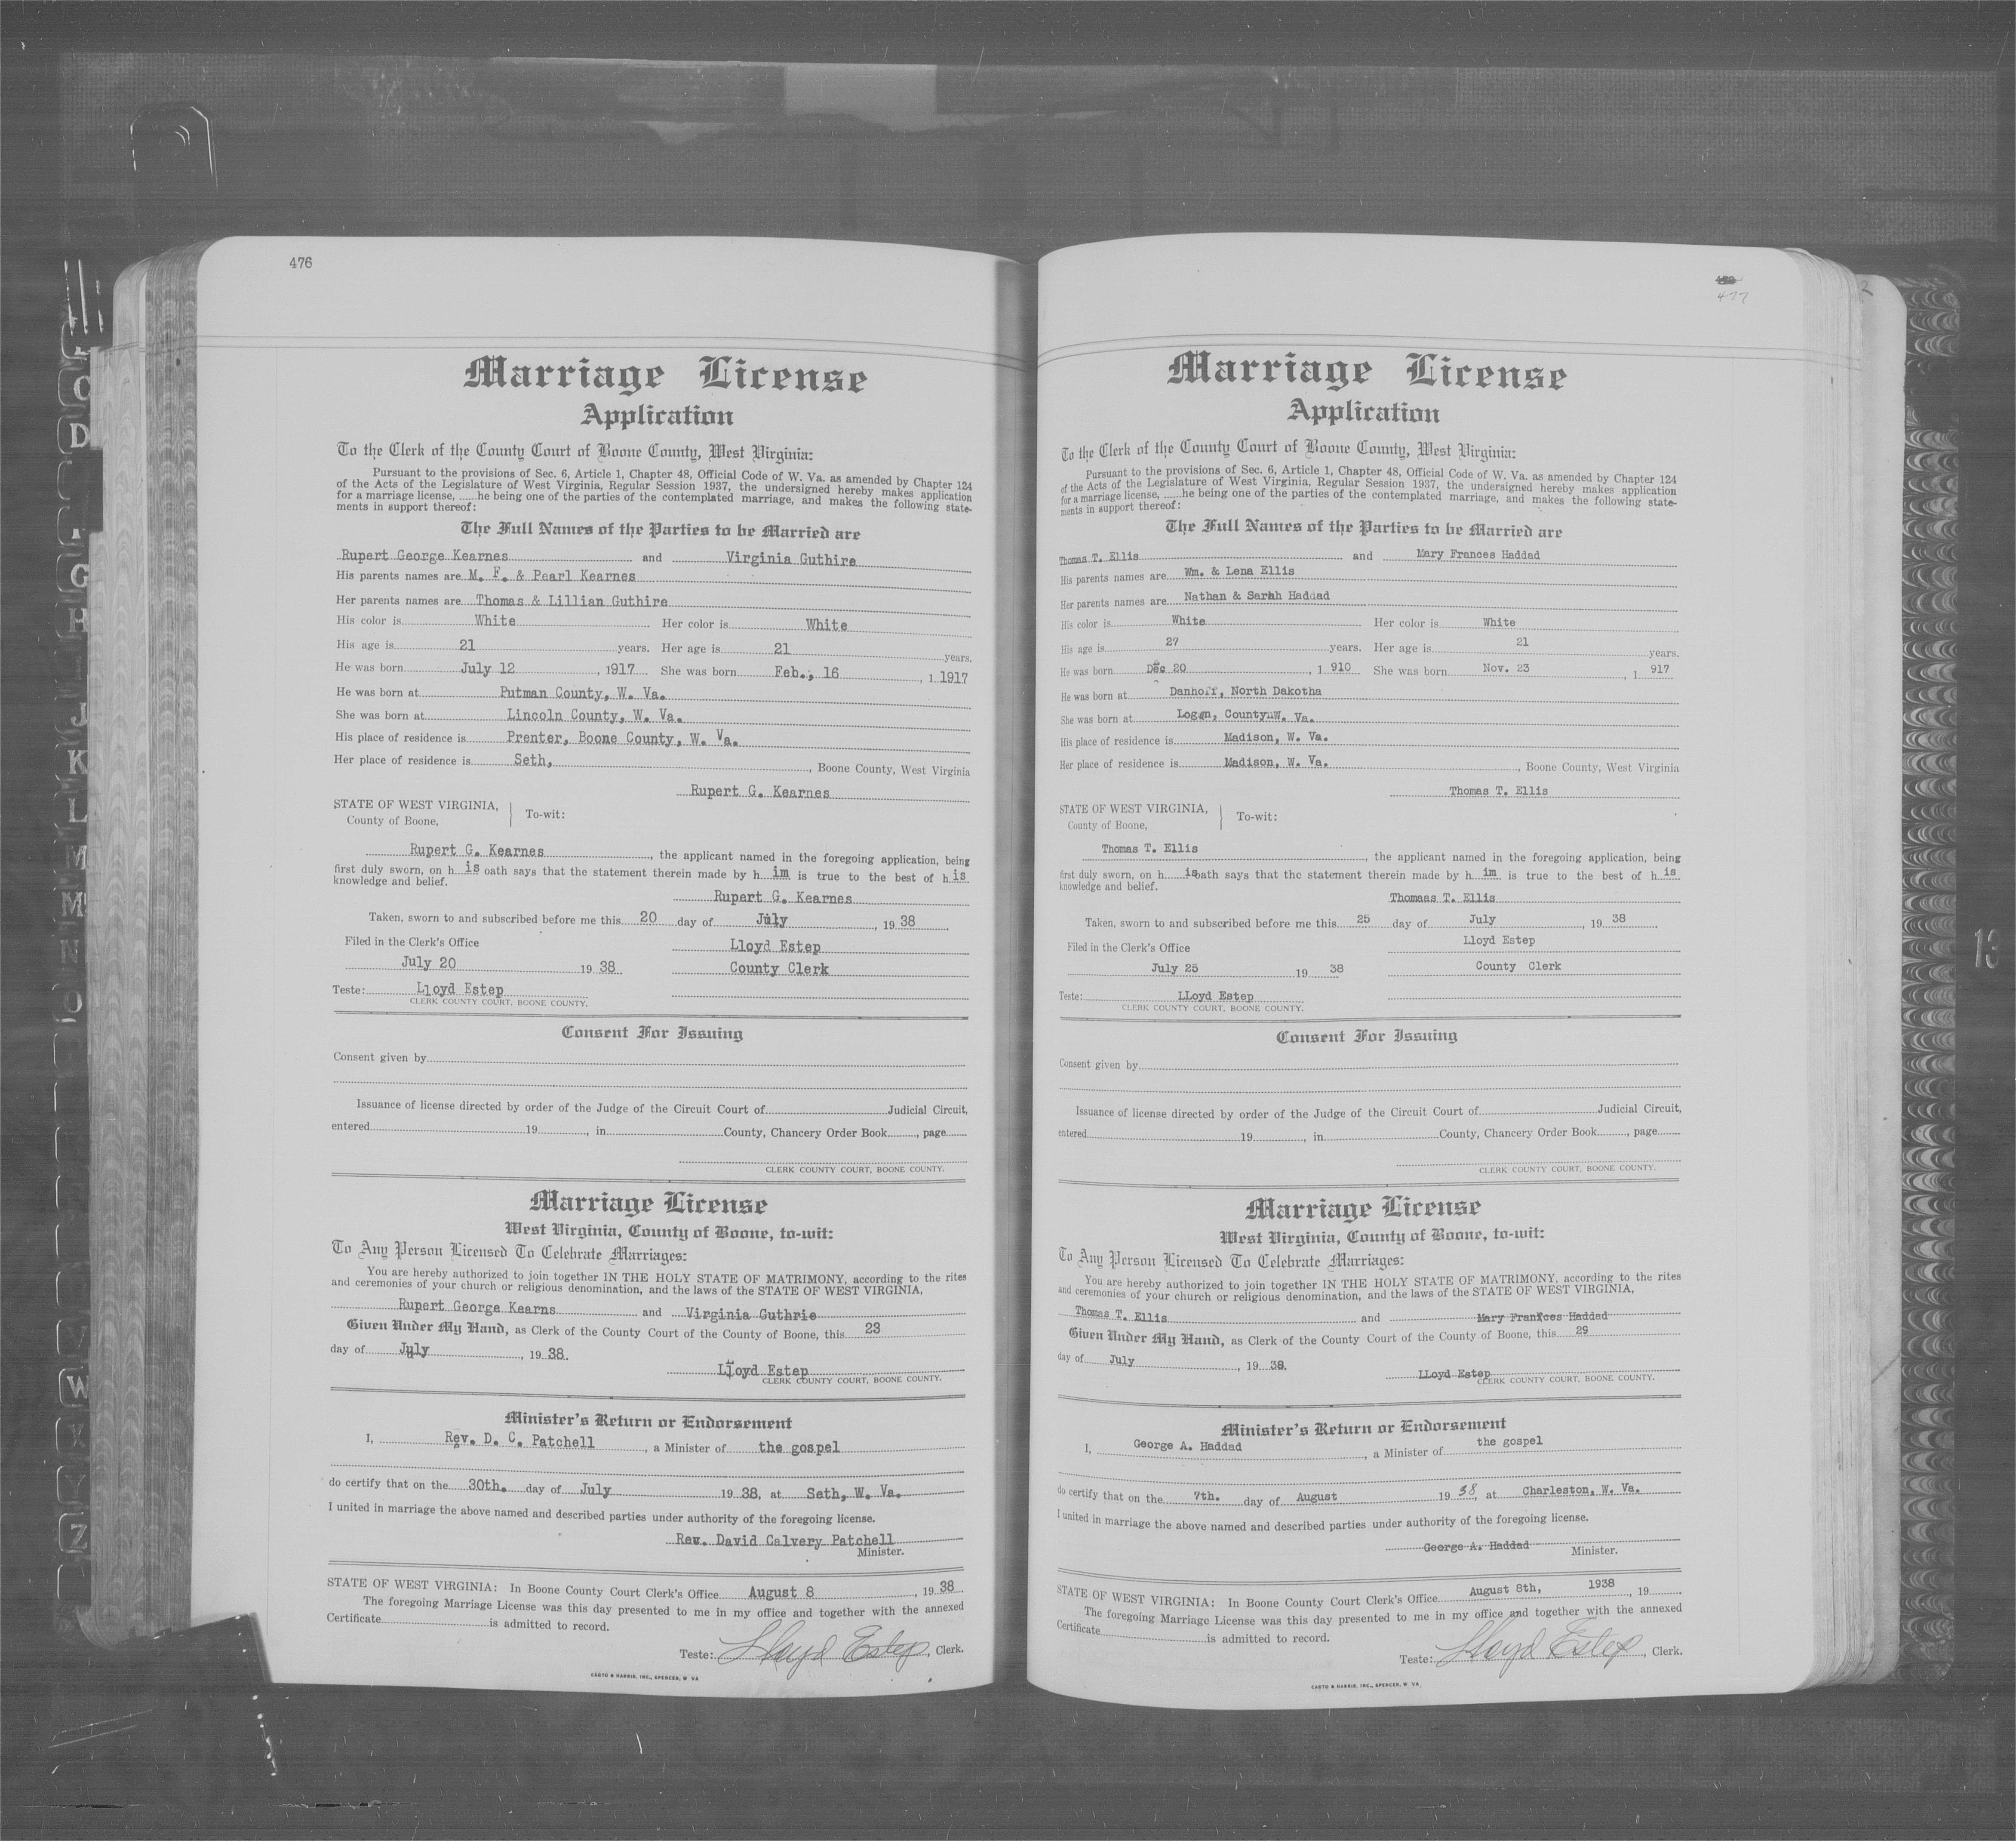 476
Marriage License
Application
To the Clerk of the County Court of Boone County, West Virginia:
Pursuant to the provisions of Sec. 6, Article 1, Chapter 48, Official Code of W. Va. as amended by Chapter 124
of the Acts of the Legislature of West Virginia, Regular Session 1937, the undersigned hereby makes application
for a marriage license, ......he being one of the parties of the contemplated marriage, and makes the following state-
ments in support thereof:
The Full Names of the Parties to be Married are
Rupert George Kearnes and Virginia Guthire
His parents names are M. F. & Pearl Kearnes
Her parents names are Thomas & Lillian Guthire
His color is White Her color is White
His age is 21 years. Her age is 21 years.
He was born July 12, 1917 She was born Feb., 16, 1 1917
He was born at Putman County, W. Va.
She was born at Lincoln County, W. Va.
His place of residence is Prenter, Boone County, W. Va.
Her place of residence is Seth, , Boone County, West Virginia
Rupert G. Kearnes
STATE OF WEST VIRGINIA,
County of Boone, To-wit:
Rupert G. Kearnes, the applicant named in the foregoing application, being
first duly sworn, on h is oath says that the statement therein made by h im is true to the best of h is
knowledge and belief.
Rupert G. Kearnes
Taken, sworn to and subscribed before me this 20 day of July, 19 38
Filed in the Clerk's Office Lloyd Estep
July 20 19 38 County Clerk
Teste: Lloyd Estep
CLERK COUNTY COURT, BOONE COUNTY.
Consent For Issuing
Consent given by
Issuance of license directed by order of the Judge of the Circuit Court of Judicial Circuit,
entered 19 , in County, Chancery Order Book , page
CLERK COUNTY COURT, BOONE COUNTY.
Marriage License
West Virginia, County of Boone, to-wit:
To Any Person Licensed To Celebrate Marriages:
You are hereby authorized to join together IN THE HOLY STATE OF MATRIMONY, according to the rites
and ceremonies of your church or religious denomination, and the laws of the STATE OF WEST VIRGINIA,
Rupert George Kearns and Virginia Guthrie
Given Under My Hand, as Clerk of the County Court of the County of Boone, this 23
day of July, 19 38.
Lloyd Estep
CLERK COUNTY COURT, BOONE COUNTY.
Minister's Return or Endorsement
I, Rev. D. C. Patchell, a Minister of the gospel
do certify that on the 30th. day of July 19 38, at Seth, W. Va.
I united in marriage the above named and described parties under authority of the foregoing license.
Rev. David Calvery Patchell
Minister.
STATE OF WEST VIRGINIA: In Boone County Court Clerk's Office August 8, 19 38
The foregoing Marriage License was this day presented to me in my office and together with the annexed
Certificate is admitted to record.
Teste: Lloyd Estep, Clerk.
CASTO & HARRIS, INC., SPENCER, W. VA.
477
Marriage License
Application
To the Clerk of the County Court of Boone County, West Virginia:
Pursuant to the provisions of Sec. 6, Article 1, Chapter 48, Official Code of W. Va. as amended by Chapter 124
of the Acts of the Legislature of West Virginia, Regular Session 1937, the undersigned hereby makes application
for a marriage license, ......he being one of the parties of the contemplated marriage, and makes the following state-
ments in support thereof:
The Full Names of the Parties to be Married are
Thomas T. Ellis and Mary Frances Haddad
His parents names are Wm. & Lena Ellis
Her parents names are Nathan & Sarah Haddad
His color is White Her color is White
His age is 27 years. Her age is 21 years.
He was born Dec 20, 1 910 She was born Nov. 23, 1 917
He was born at Danhoff, North Dakotha
She was born at Logan, County W. Va.
His place of residence is Madison, W. Va.
Her place of residence is Madison, W. Va. , Boone County, West Virginia
Thomas T. Ellis
STATE OF WEST VIRGINIA,
County of Boone, To-wit:
Thomas T. Ellis, the applicant named in the foregoing application, being
first duly sworn, on h is oath says that the statement therein made by h im is true to the best of h is
knowledge and belief.
Thomaas T. Ellis
Taken, sworn to and subscribed before me this 25 day of July, 19 38
Filed in the Clerk's Office Lloyd Estep
July 25 19 38 County Clerk
Teste: LLoyd Estep
CLERK COUNTY COURT, BOONE COUNTY.
Consent For Issuing
Consent given by
Issuance of license directed by order of the Judge of the Circuit Court of Judicial Circuit,
entered 19 , in County, Chancery Order Book , page
CLERK COUNTY COURT, BOONE COUNTY.
Marriage License
West Virginia, County of Boone, to-wit:
To Any Person Licensed To Celebrate Marriages:
You are hereby authorized to join together IN THE HOLY STATE OF MATRIMONY, according to the rites
and ceremonies of your church or religious denomination, and the laws of the STATE OF WEST VIRGINIA,
Thomas T. Ellis and Mary Frances Haddad
Given Under My Hand, as Clerk of the County Court of the County of Boone, this 29
day of July, 19 38.
LLoyd Estep
CLERK COUNTY COURT, BOONE COUNTY.
Minister's Return or Endorsement
I, George A. Haddad, a Minister of the gospel
do certify that on the 7th. day of August 19 38, at Charleston, W. Va.
I united in marriage the above named and described parties under authority of the foregoing license.
George A. Haddad
Minister.
STATE OF WEST VIRGINIA: In Boone County Court Clerk's Office August 8th, 1938, 19
The foregoing Marriage License was this day presented to me in my office and together with the annexed
Certificate is admitted to record.
Teste: Lloyd Estep, Clerk.
CASTO & HARRIS, INC., SPENCER, W. VA.
C
D
G
H
J
K
L
M
Mc
N
O
W
X
Y
Z
13
2